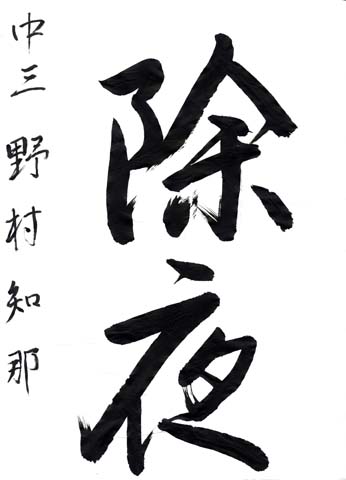 除夜
中三 野村知那